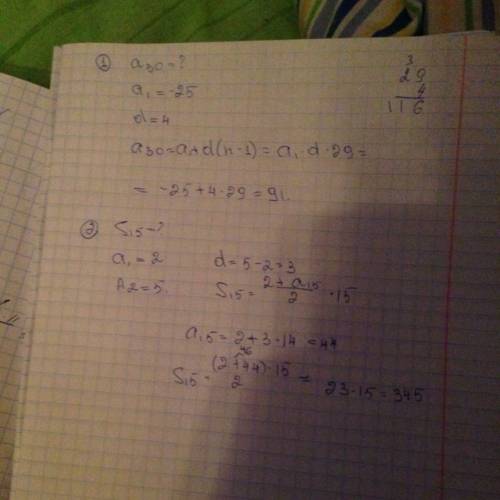 ① a₃₀ = ?
a₁ = -25
d = 4
a₃₀ = a₁ + d(n-1) = a₁ · d · 29 =
= -25 + 4 · 29 = 91.
3
29
4
116
② S₁₅ - ?
a₁ = 2 d = 5 - 2 = 3
A₂ = 5. S₁₅ = (2 + a₁₅)/2 · 15
a₁₅ = 2 + 3 · 14 = 44
46
S₁₅ = (2 + 44) · 15 / 2 = 23 · 15 = 345